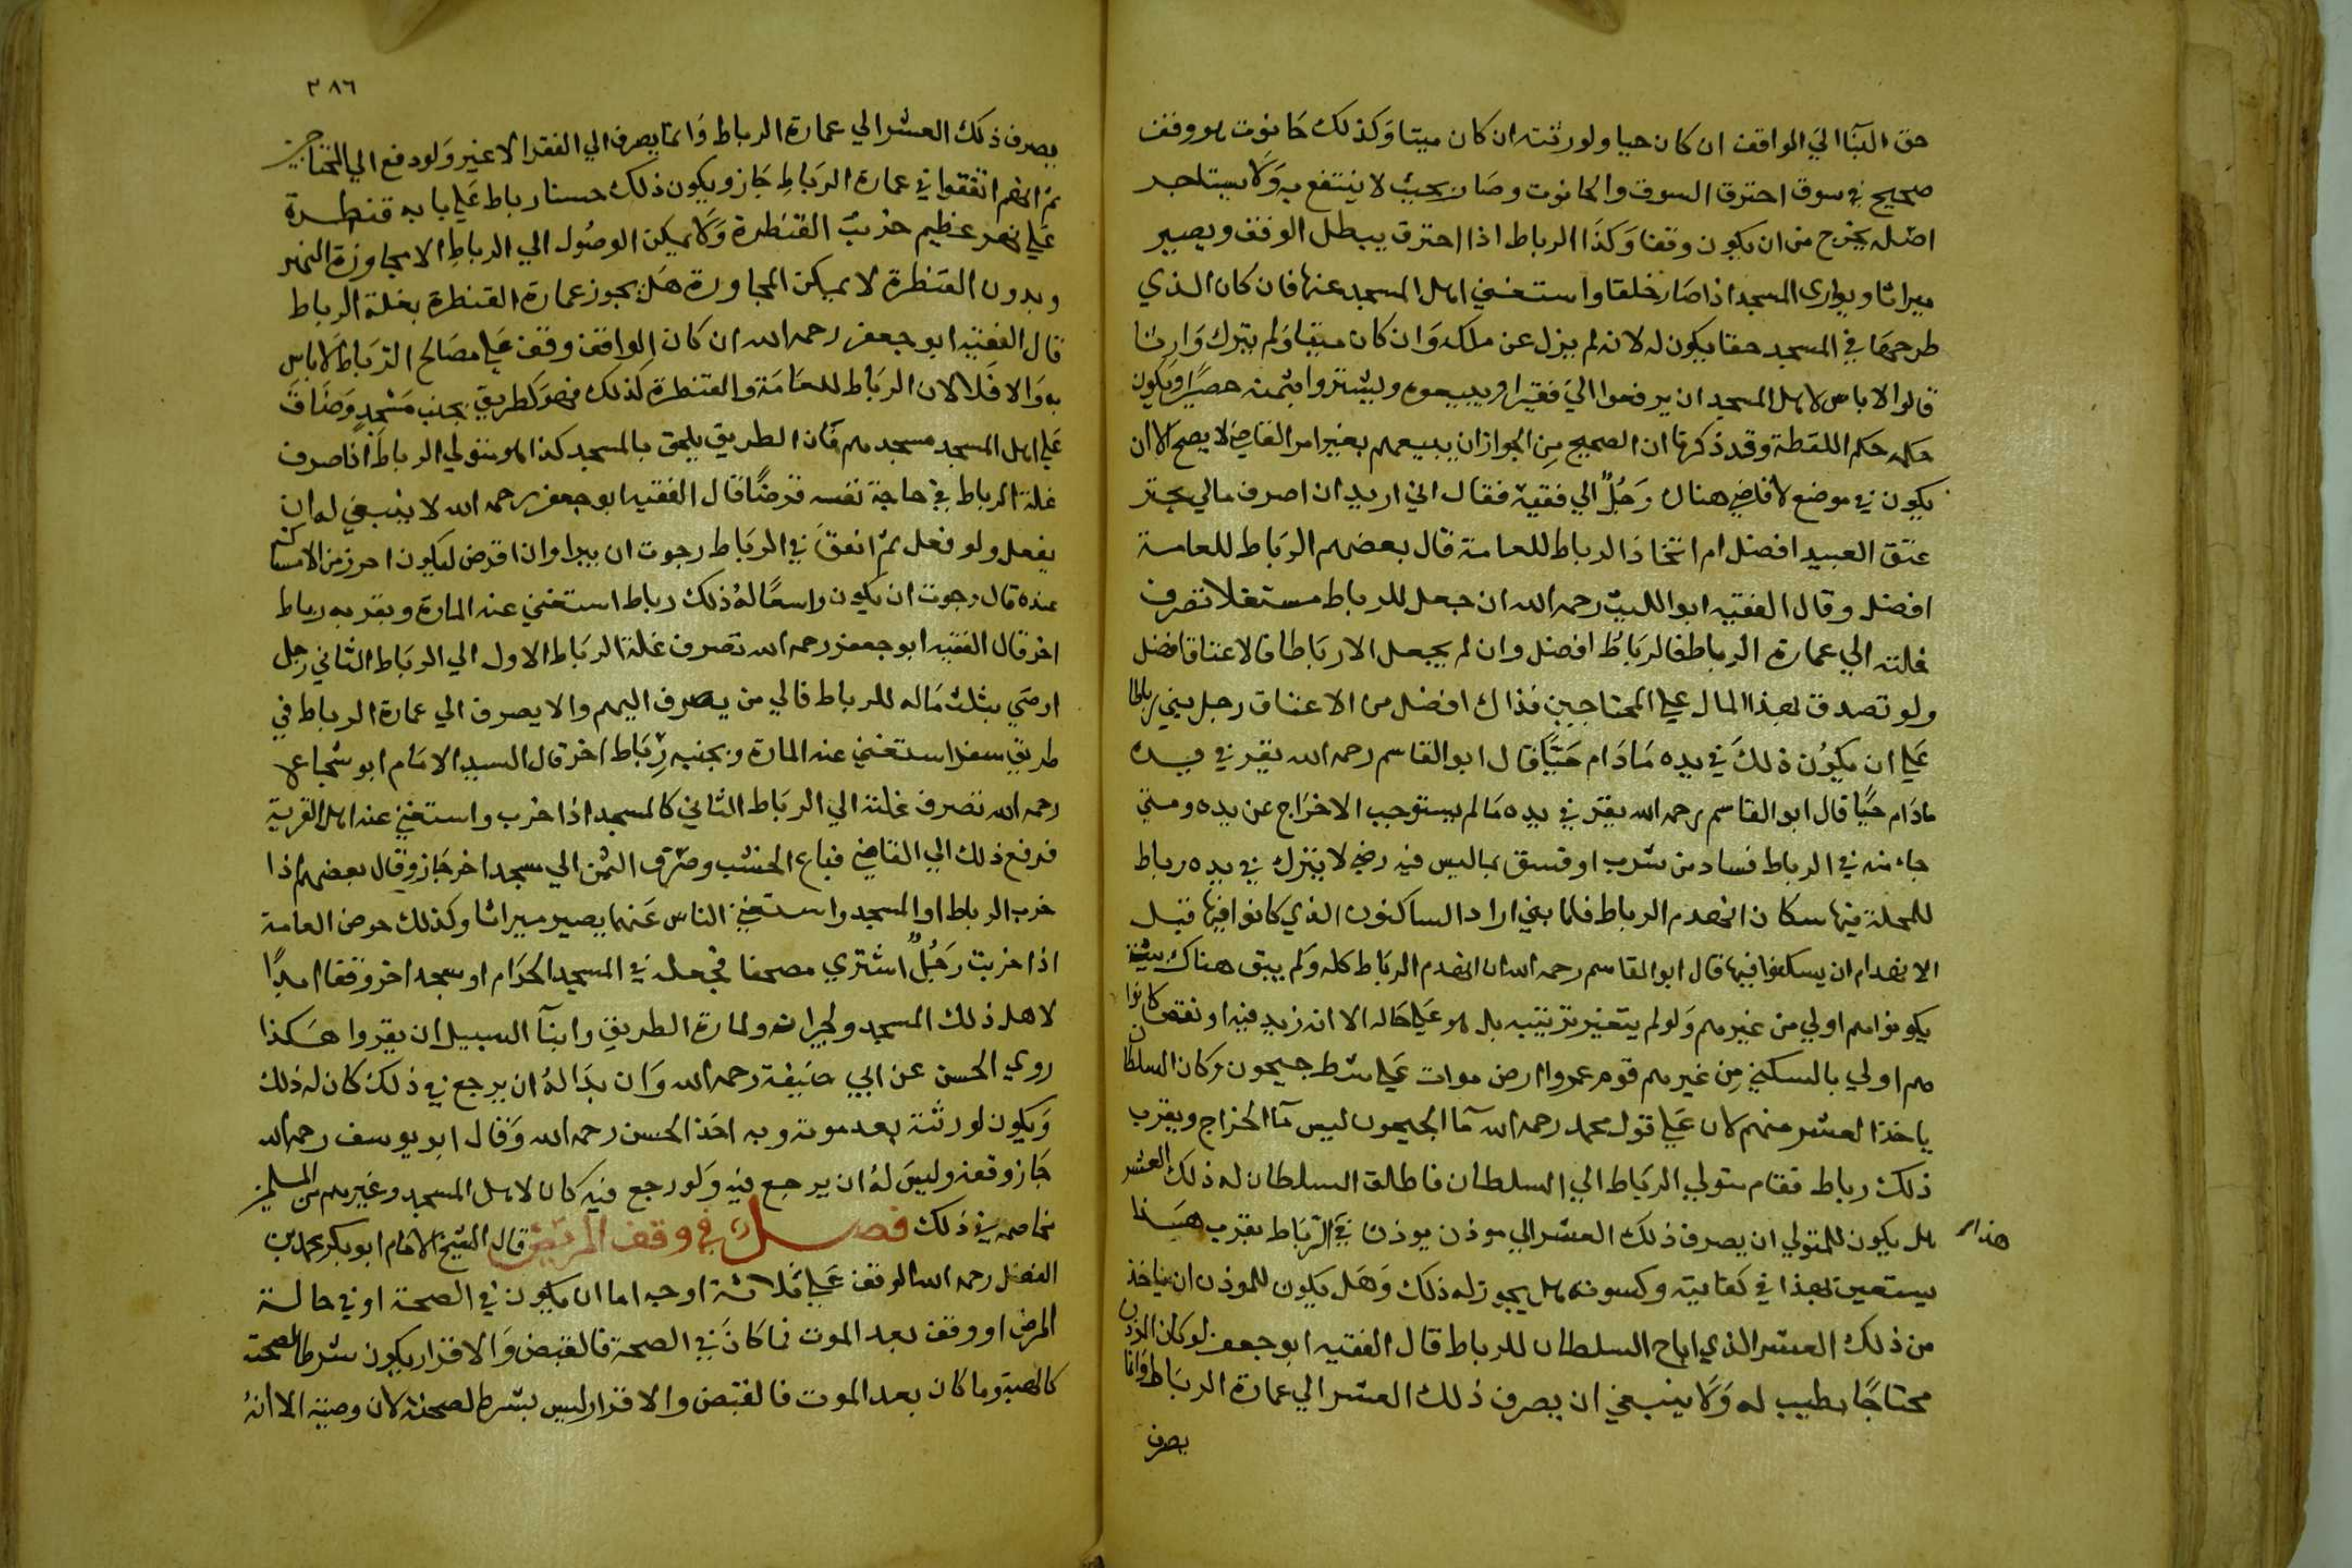 حق البنآ الي الواقف ان كان حيا ولورثته ان كان ميتا وَكذلك حَانوت هو وقف
صحيح في سوق احترق السوق والحانوت وصَار بحيث لا ينتفع به وَلا يستاجر
اصْله يخرج من ان يكون وقفا وَكذا الرباط اذا احترق يبطل الوقف ويصير
ميراثا وبوارى المسجد اذا صَار خلقا واستغني اهل المسجد عنها فان كان الذي
طرحهَا في المسجد حقا يكون له لانه لم يزل عن ملكه وَان كان ميتا وَلم يترك وَارثا
قالوا لا باس لاهل المسجد ان يرفعوا اليَ فقيرا ويبيعوه وليشتروا بثمنه حصيرًا ويكون
حكمه حكم اللقطة وقد ذكرنا ان الصحيح مِن الجواز ان يبيعهم بغير امر القاضي لا يصح الا ان
يكون في موضع لا قاضي هناك رَجُلٌ الي فقيه فقال اني اريد ان اصرف مالي بخير
عتق العبيد افضل ام اتخاذ الرباط للعامة قال بعضهم الرّبَاط للعامة
افضل وقال الفقيه ابو الليث رحمه الله ان جعل للرباط مستغلا تصرف
غلته الي عمارة الرباط فالربَاط افضل وان لم يجعل الا ربَاطا فالاعتاق افضل
ولو تصدق بهذا المال علي المحتاجين فذاك افضل من الاعتاق رجل بني رباطا
عَلي ان يكوُن ذلكَ في يده مَا دَام حَيًّا قال ابو القاسم رحمه الله يقر في يده
مادَام حيًّا قال ابو القاسم رحمه الله يقر في يده مَا لم يستوجب الاخرَاج عن يده ومتي
جاء منه في الرباط فساد من شرب او فسق بما ليس فيه رضي لا يترك في يده رباط
للمحلة فيها سكان انهدم الرباط فلما بني اراد الساكنون الذي كانوا فيها قبل
الانهدام ان يسكنوا فيها قال ابو القاسم رحمه الله ان انهدم الربَاط كله وَلم يبق هناك بيت
يكونوا هم اولي من غيرهم وَلو لم يتغير ترتيبه بل هو عَلي حَاله الا انه زيد فيه او نقص كانوا
هم اولي بالسكني مِن غيرهم قوم عمروا ارض موات عَلي شط جيحون وكان السلطان
ياخذ العشر منهم لان عَلي قول محمد رحمه الله مآ الجيحون ليس مآ الخراج وبقرب
ذلك رباط فقام متولي الربَاط الي السلطان فاطلق السلطان له ذلك العشر
هل يكون للمتولي ان يصرف ذلك العشر الي موذن يوذن في الرّبَاط بقرب هَذا
هذا
يستعين بهذا في كفايته وكسوته هل يجوز له ذلك وَهَل يكون للموذن ان ياخذ
من ذلك العشر الذي اباح السلطان للرباط قال الفقيه ابو جعفر لو كان الموذن
محتاجًا يطيب له وَلا ينبغي ان يصرف ذلك العشر الي عمارة الربَاط وَانما
يصرف
٣٨٦
يصرف ذلك العشر الي عمارة الرباط وَانما يصرف الي الفقرا لا غير وَلو دفع الي المحتاجين
ثم انهم انفقوا في عمارة الربَاطِ جَاز ويكون ذلك حسنا رباط عَلي بابه قنطرة
عَلي نهر عظيم خربت القنَطرة وَلا يمكن الوصُول الي الرباطِ الا بمجاوزة النهر
وبدون القنطرة لا يمكن المجاوزة هَل يجوز عمارة القنطرة بغلة الرباط
قال الفقيه ابو جعفر رحمه الله ان كان الواقف وقف عَلي مصَالح الرّبَاط لا باس
به وَالا فَلا لان الربَاط للعَامَة والقنطرة كذلك فهو كطريق بجنب مَسْجدٍ وَضَاقَ
عَلي اهل المسجد مسجدهم فَان الطريق يلحق بالمسجد كذا هو متولي الرباطَ اذا صرف
غلة الرباط في حاجة نفسه قرضًا قال الفقيه ابو جعفر رحمه الله لا ينبغي له ان
يفعل ولو فعل ثم انفقَ في الربَاط رجوت ان يبرا وان اقرض ليكون احرز من الامساك
عنده قال رجوت ان يكون واسعًا لهُ ذلك رباط استغني عنه المارة وبقربه رباط
اخر قال الفقيه ابو جعفر رحمه الله تصرف غلة الربَاط الاول الي الربَاط الثاني رجل
اوصَي بثلث مَاله للرباط فالي من يصرف اليهم والا يصرف الي عمارة الرباط في
طريق سفر استغني عنه المارة وبجنبه رِبَاط اخر قال السيد الامَام ابو شجاع
رحمه الله تصرف غلته الي الربَاط الثاني كالمسجد اذا خرب واستغني عنه اهل القرية
فرفع ذلك الي القاضي فباع الخشب وصَرَف الثمن الي مسجد اخر جَاز وقال بعضهم اذا
خرب الرباط او المسجد واستغني الناس عَنهما يصير ميراثا وكذلك حوض العامة
اذا خربت رَجُلٌ اشتري مصحفا فجعله في المسجد الحرَام او مسجد اخر وقفا ابدًا
لاهل ذلك المسجد ولجيرانه ولمارة الطريق وابنآ السبيل ان يقروا هَكذا
روي الحسن عن ابي حنيفة رحمه الله وَان بدَا لهُ ان يرجع في ذلك كان له ذلك
وَيكون لورثته بعد موته وبه اخَذ الحسن رحمه الله وَقال ابو يوسف رحمه الله
جَاز وقفه وليسَ لهُ ان يرجع فيه وَلو رجع فيه كان لاهل المسجد وغيرهم من المسلمين
مخاصمه في ذلك فصل في وقف المريض قال الشيخ الامَام ابو بكر محمد بن
الفضل رحمه الله الوقف عَلي ثلاثة اوجه اما ان يكون في الصحة او في حالة
المرض او وقف بعد الموت فما كانَ في الصحة فالقبض وَالاقرار يكون شرطا لصحته
كالهبة وما كان بعد الموت فالقبض والاقرار ليس بشرط لصحته لان وصية الا انهُ